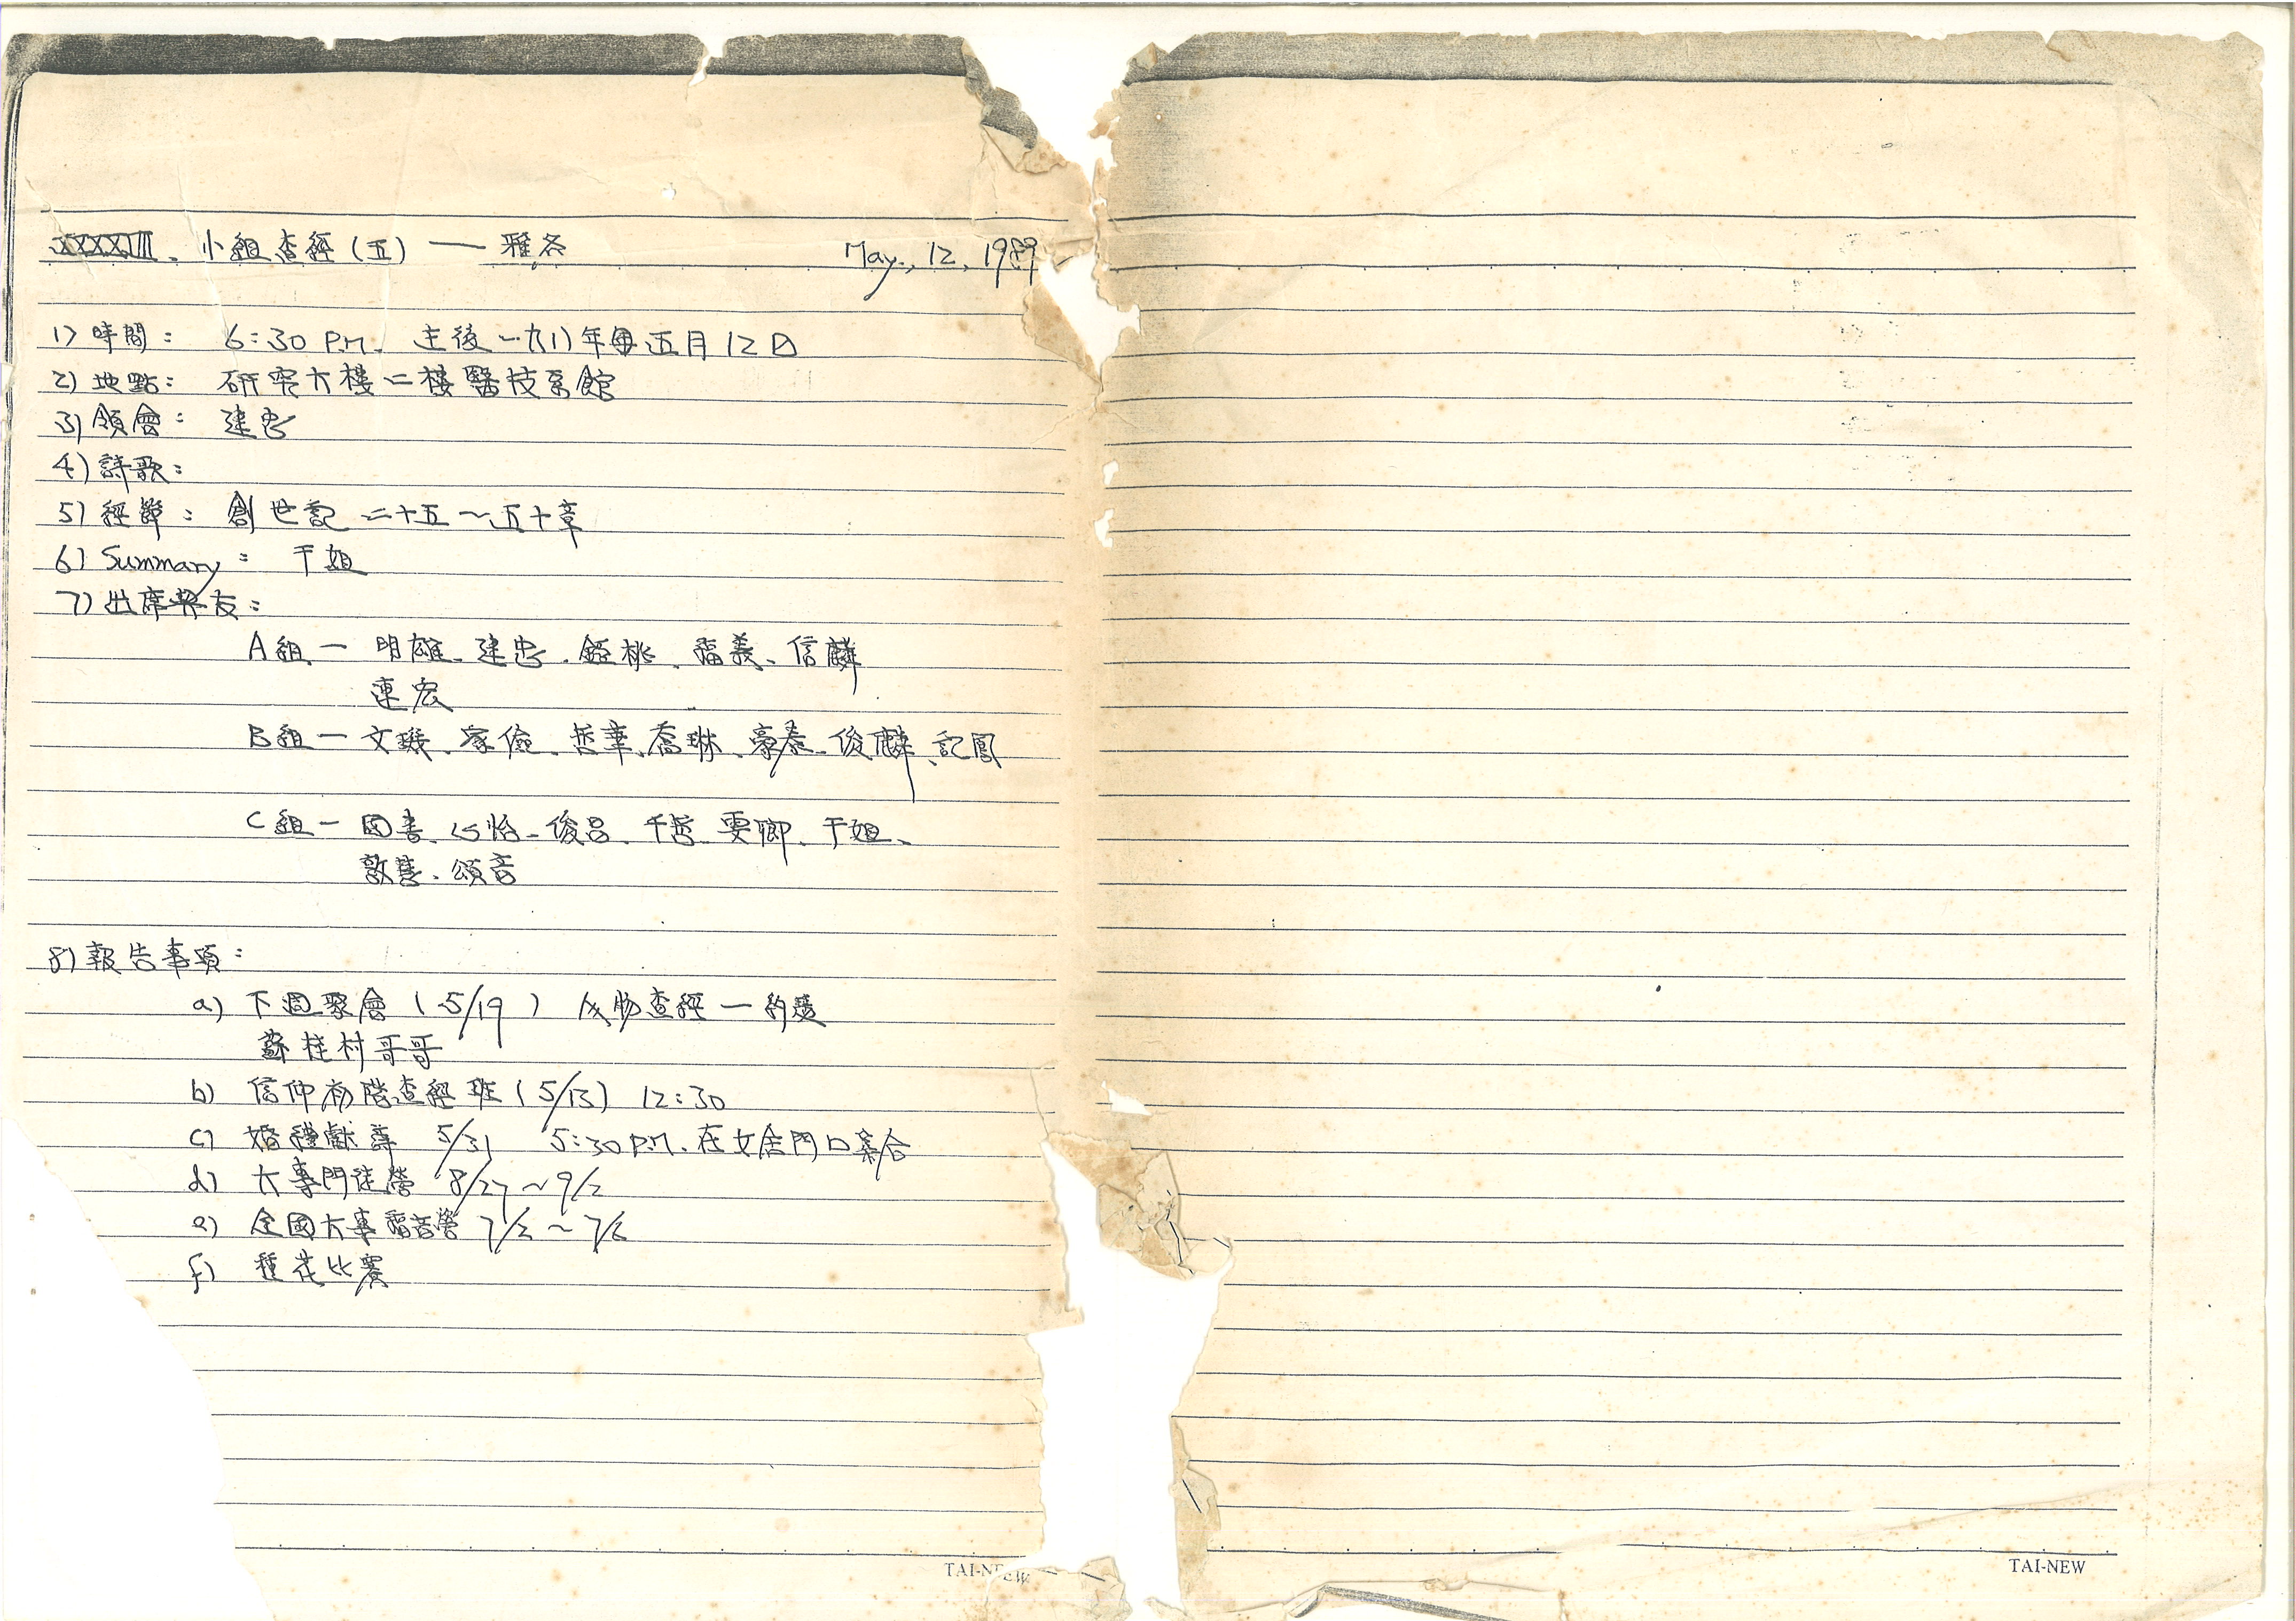 XXXXIII、小組查經（五）— 雅各 May., 12, 1989
1) 時間： 6:30 P.M. 主後一九八年五月12日
2) 地點： 研究大樓二樓醫技系館
3) 領會： 建忠
4) 詩歌：
5) 經節： 創世記 二十五～五十章
6) Summary： 于姐
7) 出席契友：
A組— 明雄、建忠、鈺桃、福義、信麟
連宏
B組— 文璣、家儉、哲華、喬琳、豪泰、俊麟、記鳳
C組— 國書、心怡、俊呂、千哲、雯卿、于姐、
敦慧、頌音
8) 報告事項：
a) 下週聚會（5/19） 人物查經—約瑟
蘇桂村哥哥
b) 信仰初階查經班（5/13） 12:30
c) 婚禮獻詩 5/31 5:30 P.M. 在女舍門口集合
d) 大專門徒營 8/27～9/2
e) 全國大專福音營 7/2～7/6
f) 種花比賽
TAI-NEW
TAI-NEW